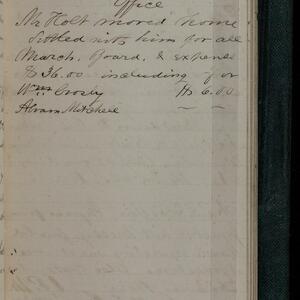 Office
Mr Holt moved home
Settled with him for all
March, Board, & expense
$36.00 including for
Wm Crosby $6.00
Abram Mitchell — —